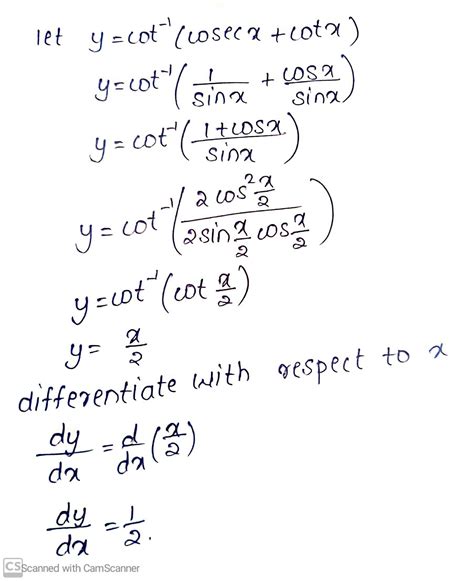 let y = cot⁻¹ (cosec x + cot x)
y = cot⁻¹ ( 1/sin x + cos x/sin x )
y = cot⁻¹ ( 1 + cos x / sin x )
y = cot⁻¹ ( 2 cos² x/2 / 2 sin x/2 cos x/2 )
y = cot⁻¹ (cot x/2)
y = x/2
differentiate with respect to x
dy/dx = d/dx (x/2)
dy/dx = 1/2.
CS Scanned with CamScanner